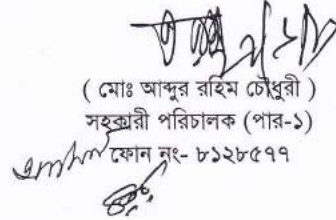 ( মোঃ আব্দুর রহিম চৌধুরী )
সহকারী পরিচালক (পার-১)
ফোন নং- ৮১২৮৫৭৭